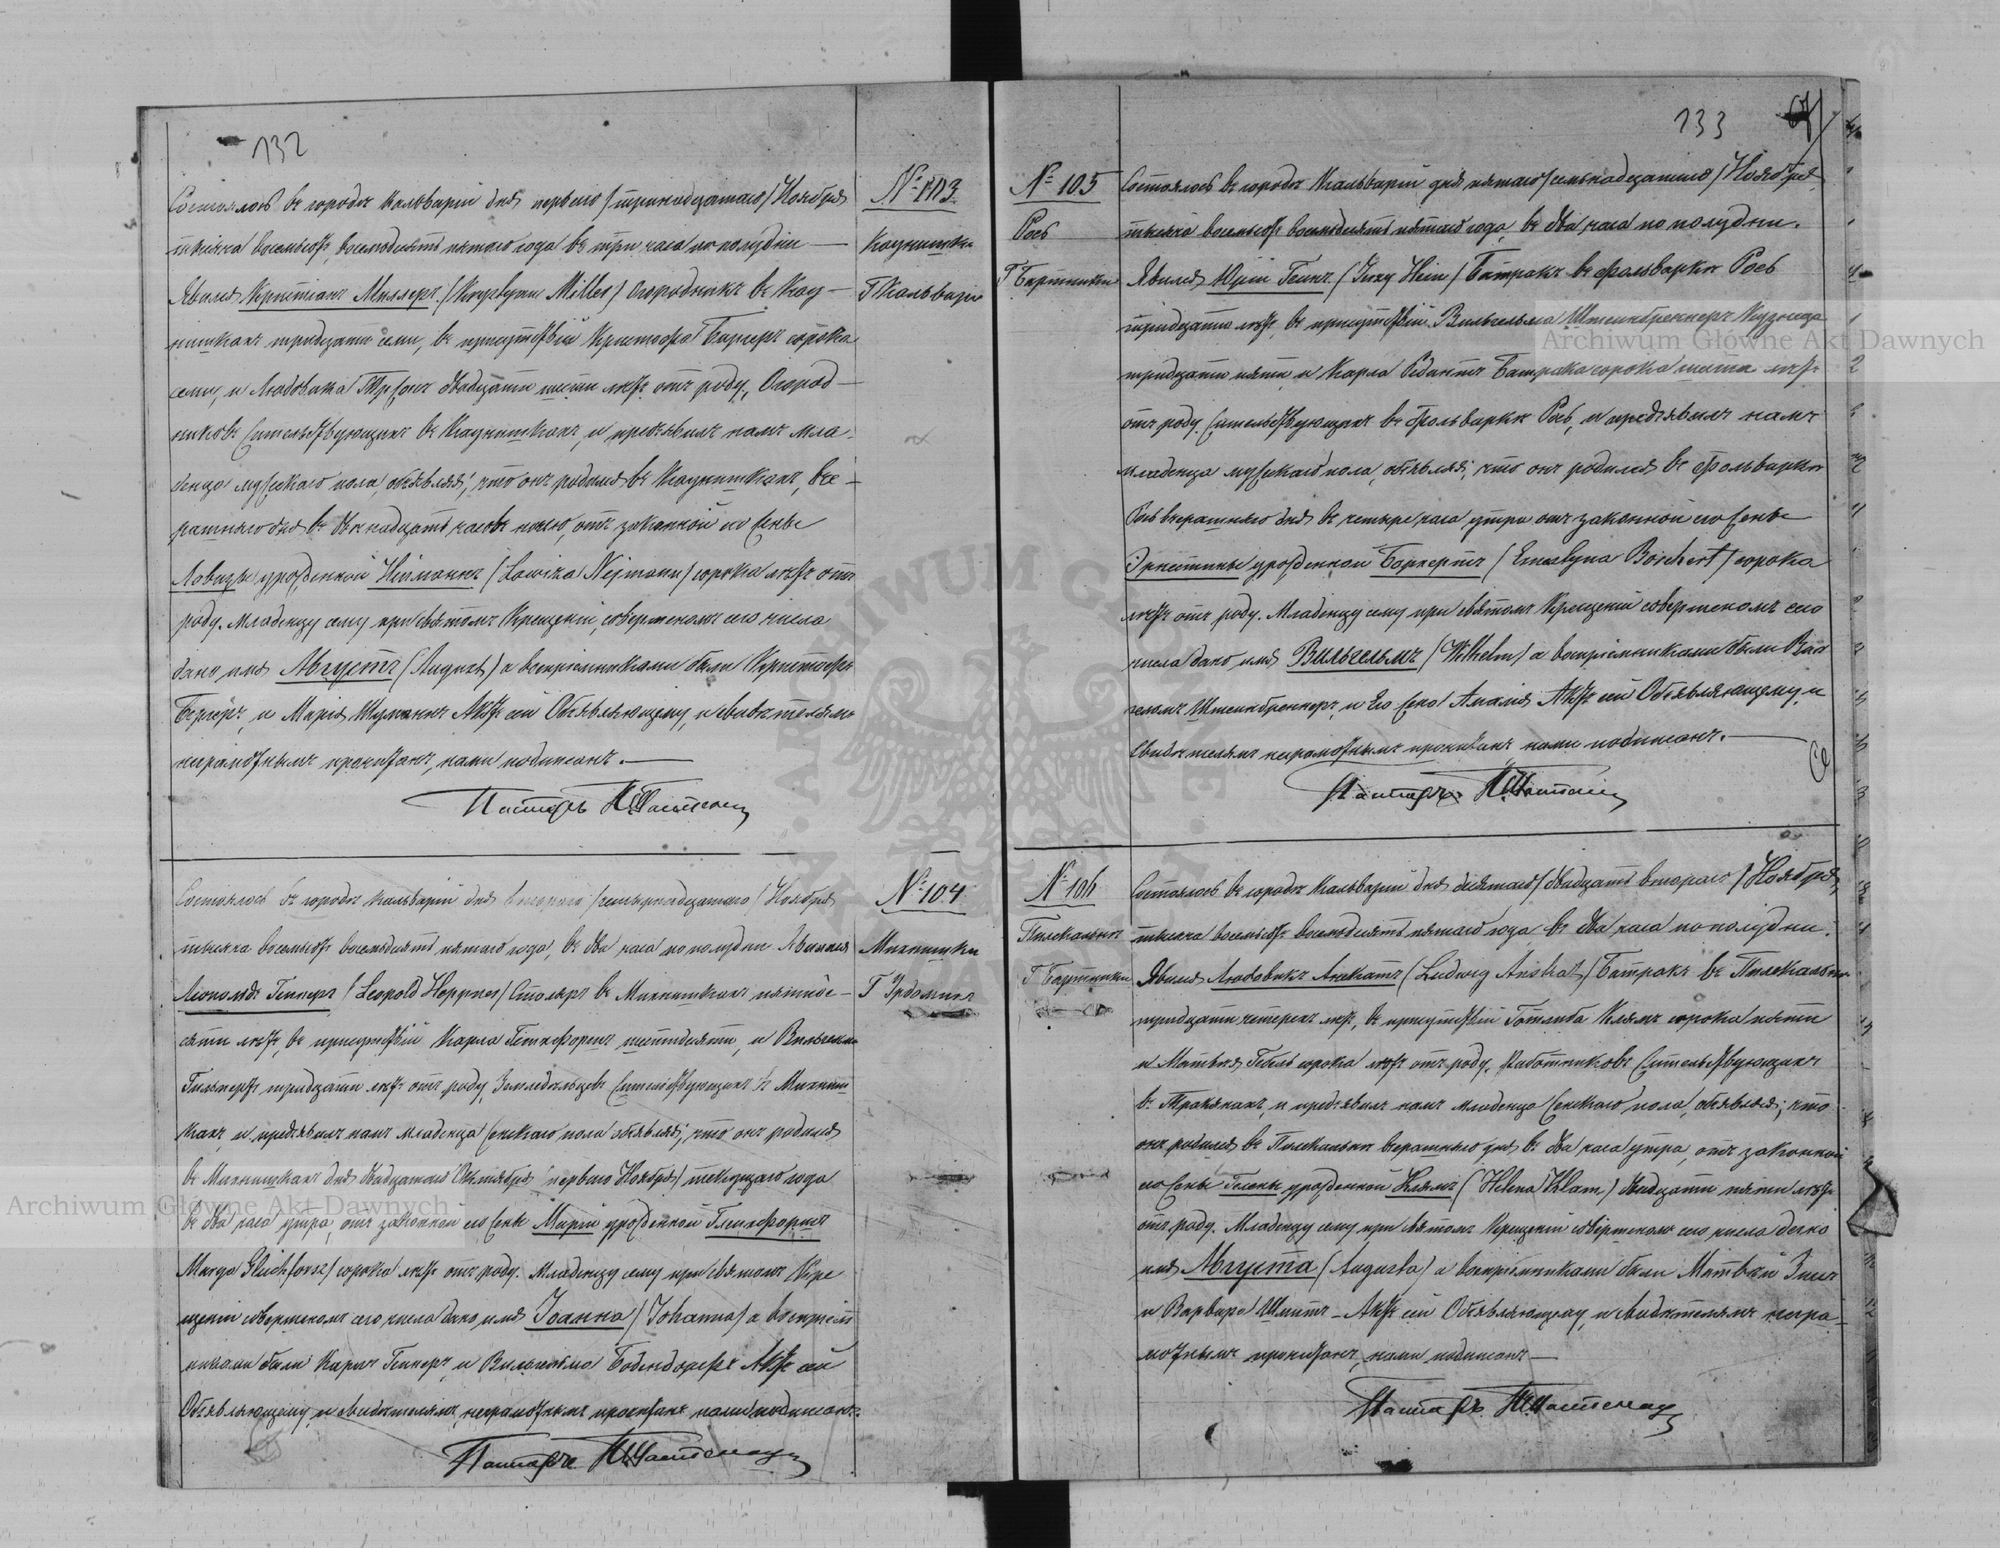 132
№ 103
Каунишки
Г Кальварія
Состоялось въ городѣ Кальваріи дня перваго /тринадцатаго/ Ноября
тысяча восемьсотъ восемьдесятъ пятаго года въ три часа по полудни —
Явился Христіанъ Миллеръ (Krystyan Miller) Огородникъ въ Кау-
нишкахъ тридцати семи, въ присутствіи Кристофа Бергеръ сорока
семи, и Людовика двадцати шести лѣтъ отъ роду, Огород-
никовъ жительствующихъ въ Каунишкахъ, и предъявилъ намъ мла-
денца мужескаго пола, объявляя, что онъ родился въ Каунишкахъ, вче-
рашняго дня въ двѣнадцать часовъ ночью, отъ законной его жены
Ловизы урожденной Нейманнъ (Lowiza Nejmann) сорока лѣтъ отъ
роду. Младенцу сему при святомъ Крещеніи, совершеномъ сего числа
дано имя Августъ (August) а воспріемниками были Кристофъ
Бергеръ, и Марія Шуманнъ Актъ сей Объявляющему, и свидѣтелямъ
неграмотнымъ прочитанъ, нами подписанъ. —
Пасторъ
№ 104
Михнишки
Г Удоминъ
Состоялось въ городѣ Кальваріи дня втораго /четырнадцатаго/ Ноября
тысяча восемьсотъ восемьдесятъ пятаго года, въ два часа по полудни Явился
Леопольдъ Гепнеръ (Leopold Heppner) Столяръ въ Михнишкахъ пятиде-
сяти лѣтъ, въ присутствіи Карла шестидесяти, и Вильгельма
тридцати лѣтъ отъ роду, Земледѣльцевъ жительствующихъ въ Михниш-
кахъ, и предъявилъ намъ младенца женскаго пола объявляя, что онъ родился
въ Михнишкахъ дня двадцатаго Октября /перваго Ноября/ текущаго года
въ два часа утра, отъ законной его жены Маріи урожденной Глейхфоршъ
Marya Gleichforsz) сорока лѣтъ отъ роду. Младенцу сему при святомъ Кре
щеніи совершеномъ сего числа дано имя Іоанна (Johanna) а воспріем
никами были Карлъ Гепнеръ, и Вильгельмина Актъ сей
Объявляющему, и свидѣтелямъ, неграмотнымъ прочитанъ нами подписанъ.
Пасторъ
133
№ 105
Рось
Г Бартники
Состоялось въ городѣ Кальваріи дня пятаго /семьнадцатаго/ Ноября
тысяча восемьсотъ восемьдесятъ пятаго года, въ два часа по полудни.
Явился Юрій Гейнъ (Jerzy Hein) Батракъ въ фольваркѣ Рось
тридцати лѣтъ, въ присутствіи Вильгельма Штейнбреннеръ Кузнеца
тридцати пяти и Карла Батрака сорока шести лѣтъ
отъ роду, жительствующихъ въ фольваркѣ Рось, и предъявилъ намъ
младенца мужескаго пола, объявляя, что онъ родился въ фольваркѣ
Рось вчерашняго дня въ четыре часа утра отъ законной его жены
Эрнестины урожденной Борхертъ (Ernestyna Borchert) сорока
лѣтъ отъ роду. Младенцу сему при святомъ Крещеніи совершеномъ сего
числа дано имя Вильгельмъ (Wilhelm) а воспріемниками были Виль
гельмъ Штейнбреннеръ, и его жена Амалія Актъ сей Объявляющему, и
свидѣтелямъ неграмотнымъ прочитанъ нами подписанъ. —
Пасторъ
№ 106
Пилекальни
Г Бартники
Состоялось въ городѣ Кальваріи дня десятаго /двадцать втораго/ Ноября,
тысяча восемьсотъ восемьдесятъ пятаго года въ два часа по полудни.
Явился Людовикъ Анскатъ (Ludwig Anskat) Батракъ въ Пилекальняхъ
тридцати четырехъ лѣтъ, въ присутствіи Готлиба Клямъ сорока пяти
и Матвея сорока лѣтъ отъ роду, Работниковъ жительствующихъ
въ и предъявилъ намъ младенца женскаго пола, объявляя, что
онъ родился въ Пилекальни вчерашняго дня въ два часа утра, отъ законной
его жены Гелены урожденной Клямъ (Helena Klam) двадцати пяти лѣтъ
отъ роду. Младенцу сему при святомъ Крещеніи совершеномъ сего числа дано
имя Августа (Augusta) а воспріемниками были Матвѣй
и Варвара Шмитъ — Актъ сей Объявляющему, и свидѣтелямъ негра-
мотнымъ прочитанъ, нами подписанъ —
Пасторъ
Archiwum Główne Akt Dawnych
Archiwum Główne Akt Dawnych